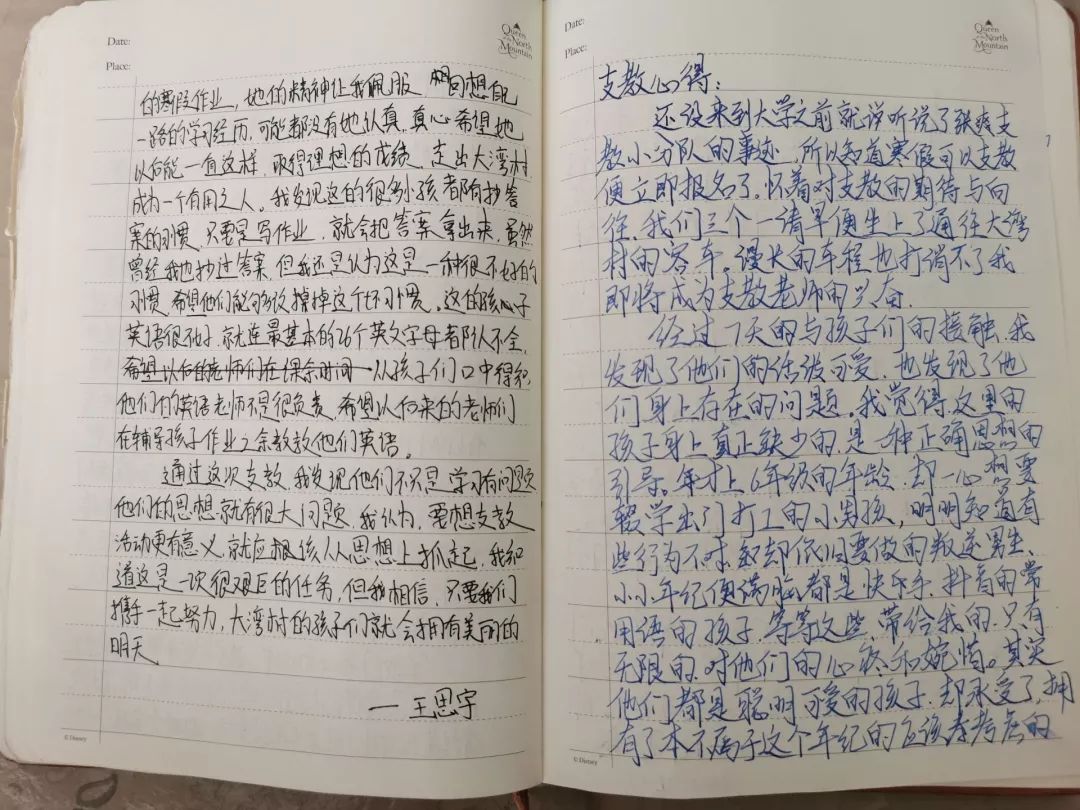 Date:
Place:
Queen
of the North
Mountain
的寒假作业，她的精神让我佩服 回想自己
一路的学习经历，可能都没有她认真，真心希望她
以后能一直这样，取得理想的成绩，走出大湾村，
成为一个有用之人。我发现这的很多小孩都有抄答
案的习惯，只要是写作业，就会把答案拿出来，虽然
曾经我也抄过答案，但我还是认为这是一种很不好的
习惯，希望他们能够改掉这个坏习惯。这的孩子
英语很不好，就连最基本的26个英文字母都认不全，
希望以后的老师们在课余时间 从孩子们口中得知，
他们的英语老师不是很负责，希望以后来的老师们
在辅导孩子作业之余教教他们英语。
通过这次支教，我发现他们不只是学习有问题
他们的思想就有很大问题，我认为，要想支教
活动更有意义，就应该从思想上抓起，我知
道这是一次很艰巨的任务，但我相信，只要我们
携手一起努力，大湾村的孩子们就会拥有美丽的
明天
— 王思宇
© Disney
Date:
Place:
Queen
of the North
Mountain
支教心得：
还没来到大学之前就说听说了张爽支
教小分队的事迹，所以知道寒假可以支教
便立即报名了。怀着对支教的期待与向
往，我们三个一清早便坐上了通往大湾
村的客车。漫长的车程也打消不了我
即将成为支教老师的兴奋.
经过7天的与孩子们的接触，我
发现了他们的活泼可爱，也发现了他
们身上存在的问题。我觉得，这里的
孩子身上真正缺少的，是一种正确思想的
引导。年才上6年级的年龄，却一心想要
辍学出门打工的小男孩，明明知道有
些行为不对，却依旧要做的叛逆男生、
小小年纪便满脑都是快手、抖音的常
用语的孩子，等等这些，带给我的，只有
无限的，对他们的心疼和惋惜。其实
他们都是聪明可爱的孩子，却承受了，拥
有了本不属于这个年纪的应该考虑的
© Disney